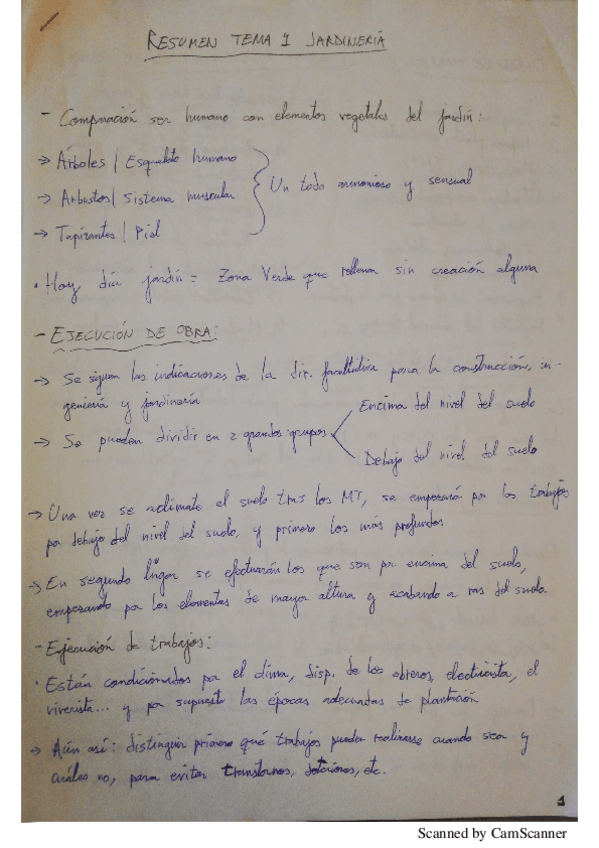 RESUMEN TEMA 1 JARDINERÍA
- Comparación ser humano con elementos vegetales del jardín:
→ Árboles / Esqueleto humano
→ Arbustos / Sistema muscular
→ Tapizantes / Piel
Un todo armonioso y sensual
· Hoy día jardín = Zona Verde que rellena sin creación alguna
- EJECUCIÓN DE OBRA:
→ Se siguen las indicaciones de la dir. facultativa para la construcción, in-
geniería y jardinería
→ Se pueden dividir en 2 grandes grupos
Encima del nivel del suelo
Debajo del nivel del suelo
→ Una vez se aclimate el suelo tras los MT, se empezará por los trabajos
por debajo del nivel del suelo, y primero los más profundos
→ En segundo lugar se efectuarán los que son por encima del suelo,
empezando por los elementos de mayor altura y acabando a ras del suelo.
- Ejecución de trabajos:
· Están condicionados por el clima, disp. de los obreros, electricista, el
viverista... y por supuesto las épocas adecuadas de plantación
→ Aún así: distinguir primero qué trabajos pueden realizarse cuando sea y
cuáles no, para evitar transtornos, etc.
1
Scanned by CamScanner